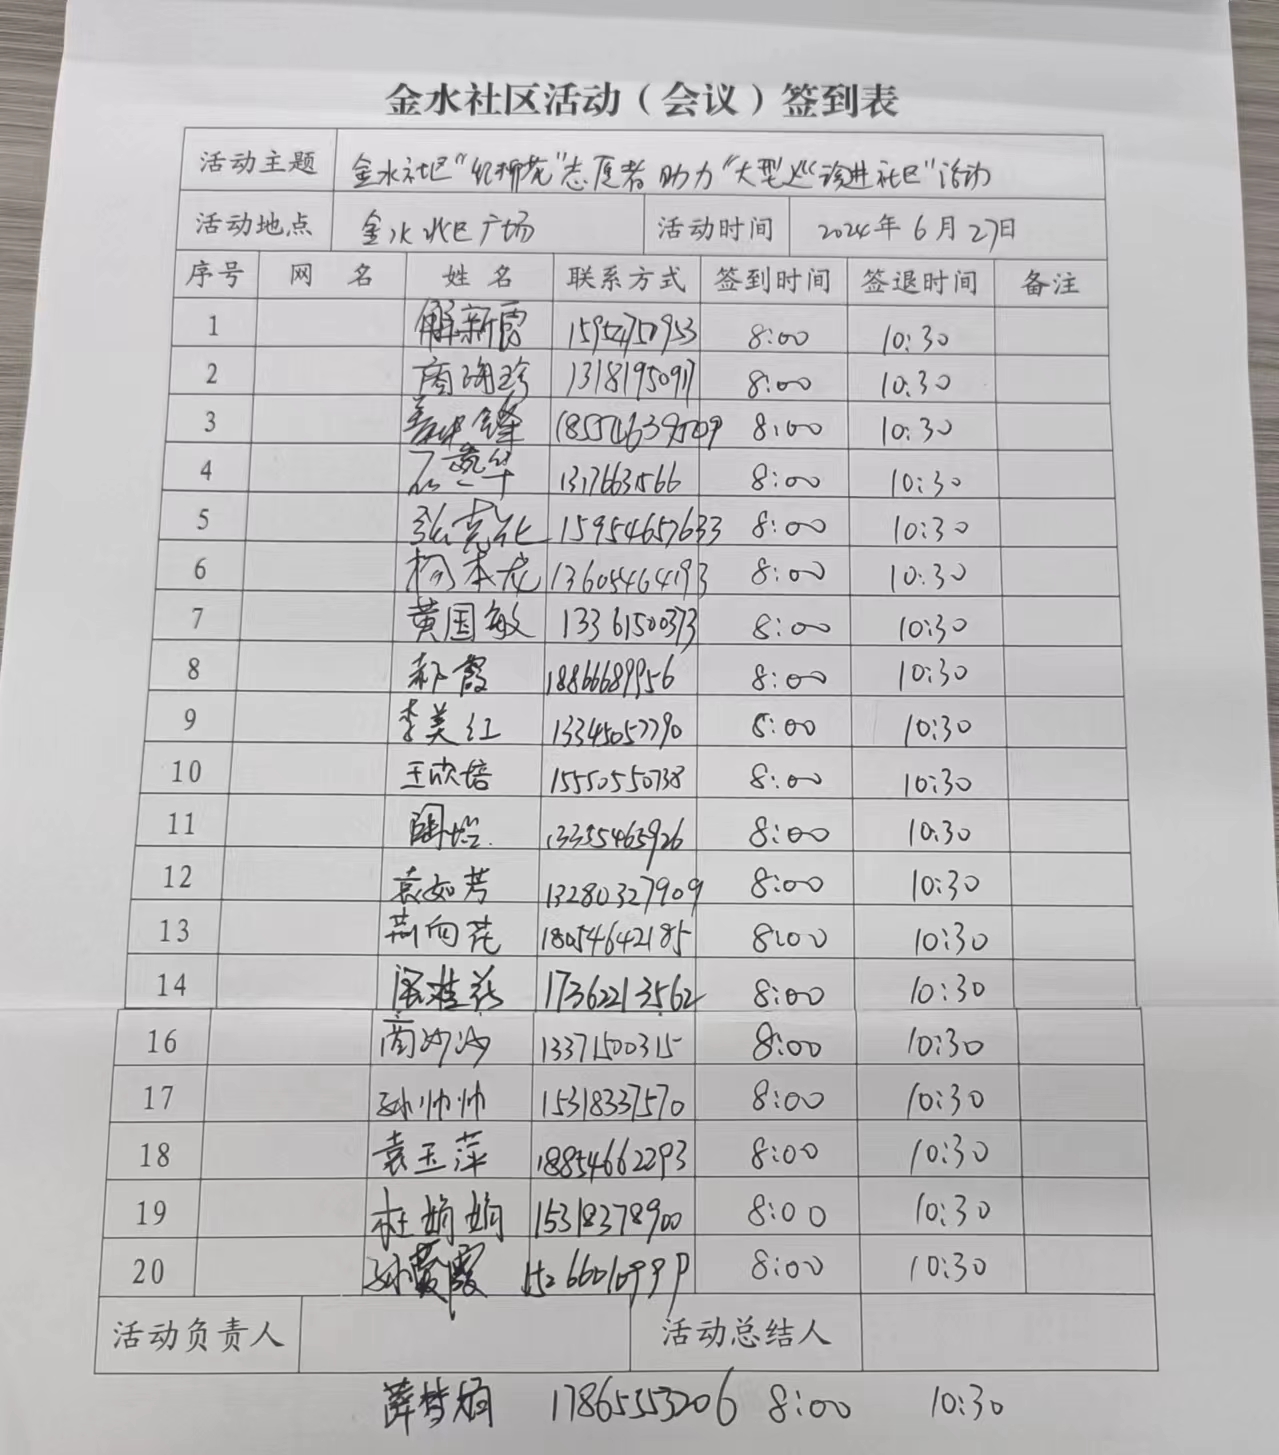 金水社区活动（会议）签到表
活动主题 金水社区“红柳花”志愿者助力“大型巡诊进社区”活动
活动地点 金水社区广场 活动时间 2024年6月27日
序号 网 名 姓 名 联系方式 签到时间 签退时间 备注
1 解新霞 15954750953 8:00 10:30
2 商海珍 13181950917 8:00 10:30
3 18554639509 8:00 10:30
4 石慧华 13176631566 8:00 10:30
5 张克礼 15954657633 8:00 10:30
6 杨本龙 13605464193 8:00 10:30
7 黄国敏 13361500373 8:00 10:30
8 霞 18866689956 8:00 10:30
9 李美红 13345057790 8:00 10:30
10 王欣培 15550550738 8:00 10:30
11 13355465926 8:00 10:30
12 袁如芳 13280327909 8:00 10:30
13 荆向花 18054642185 8:00 10:30
14 桂花 17362213562 8:00 10:30
16 商沙沙 13371500315 8:00 10:30
17 孙帅帅 15318337570 8:00 10:30
18 袁玉萍 18854662293 8:00 10:30
19 杜娟娟 15318378900 8:00 10:30
20 孙霞 8:00 10:30
活动负责人 活动总结人
薛梦娟 17865553206 8:00 10:30